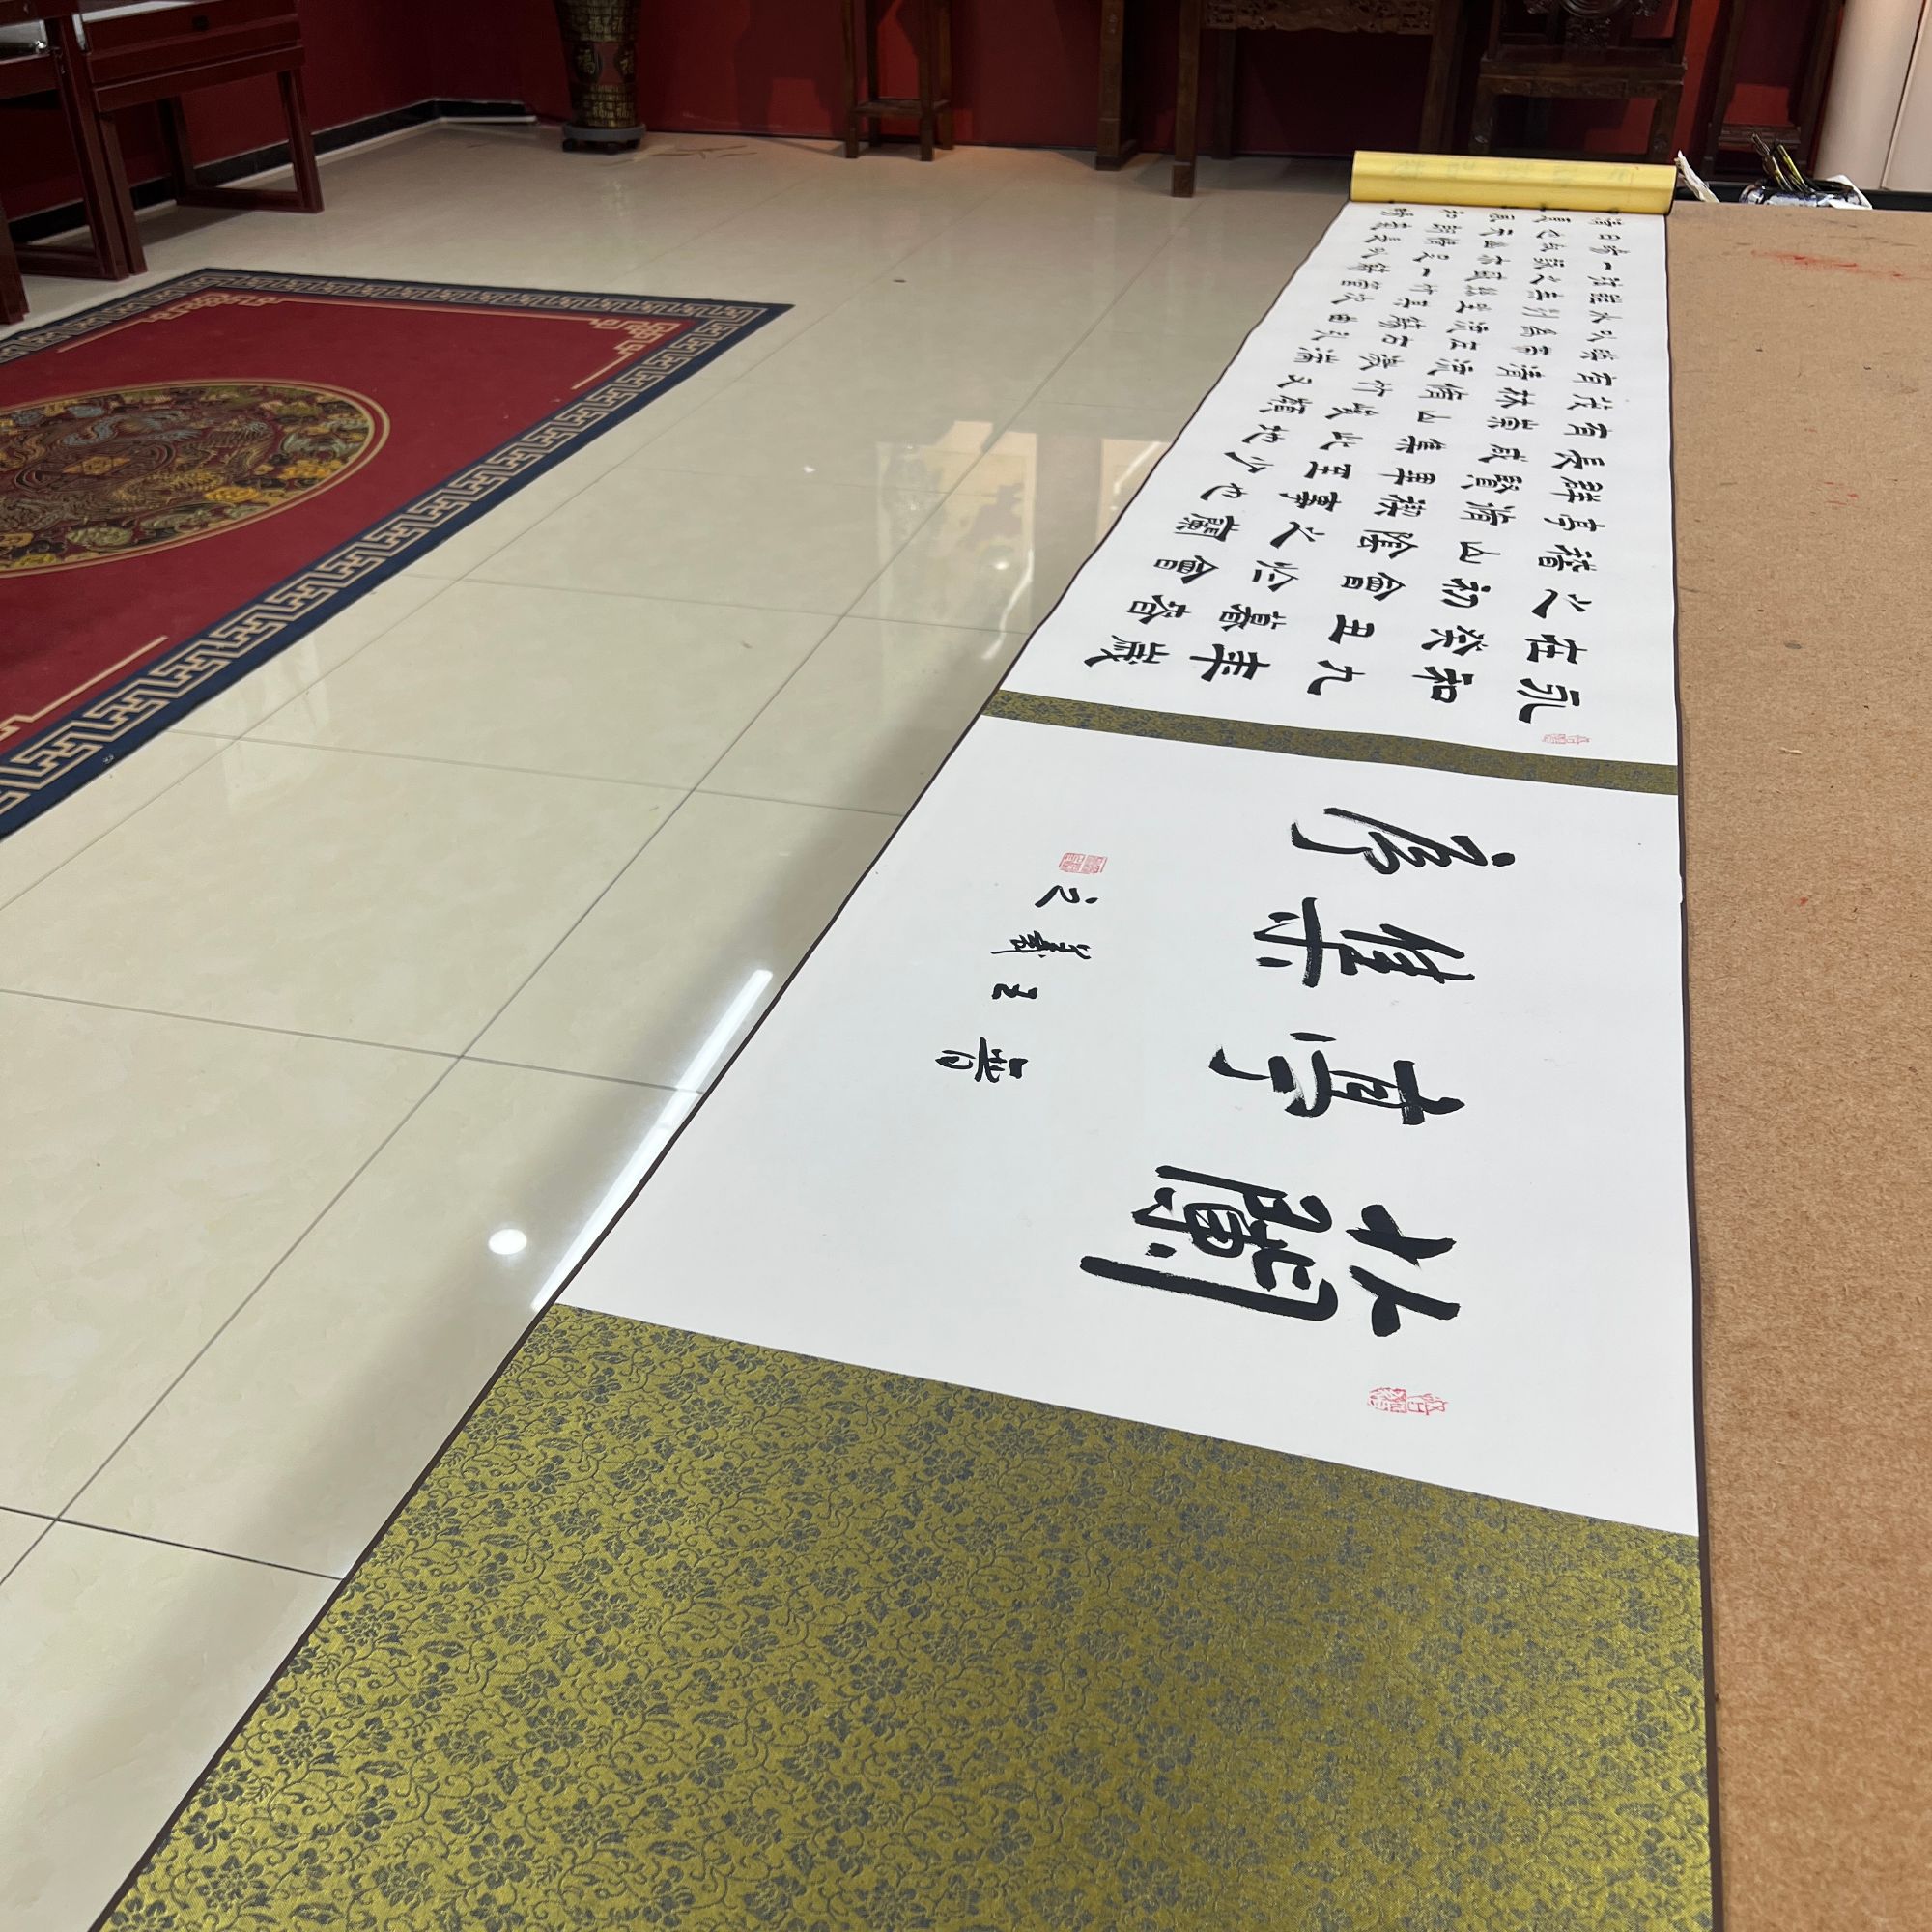 蘭亭集序
晉王羲之
永和九年歲
在癸丑暮春
之初會於會
稽山陰之蘭
亭脩禊事也
群賢畢至少
長咸集此地
有崇山峻領
茂林脩竹又
有清流激湍
暎帶左右引
以為流觴曲
水列坐其次
雖無絲竹管
弦之盛一觴
一詠亦足以
暢敘幽情是
日也天朗氣
清惠風和暢
福